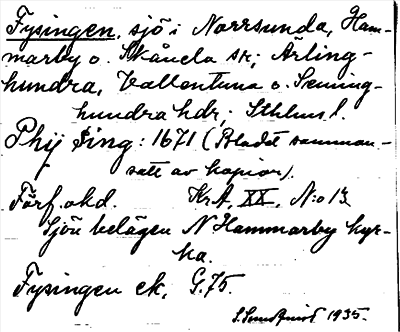 Fysingen, sjö i Norrsunda, Ham-
marby o. Skånela sr; Ärling-
hundra, Vallentuna o. Seming-
hundra hdr; Sthlms l.
Phij Sing: 1671 (Bladet samman-
satt av kopior).
Förf. okd. KrA, XX, N:o 13.
Sjön belägen N Hammarby kyr-
ka.
Fysingen ek, G.75.
1935.